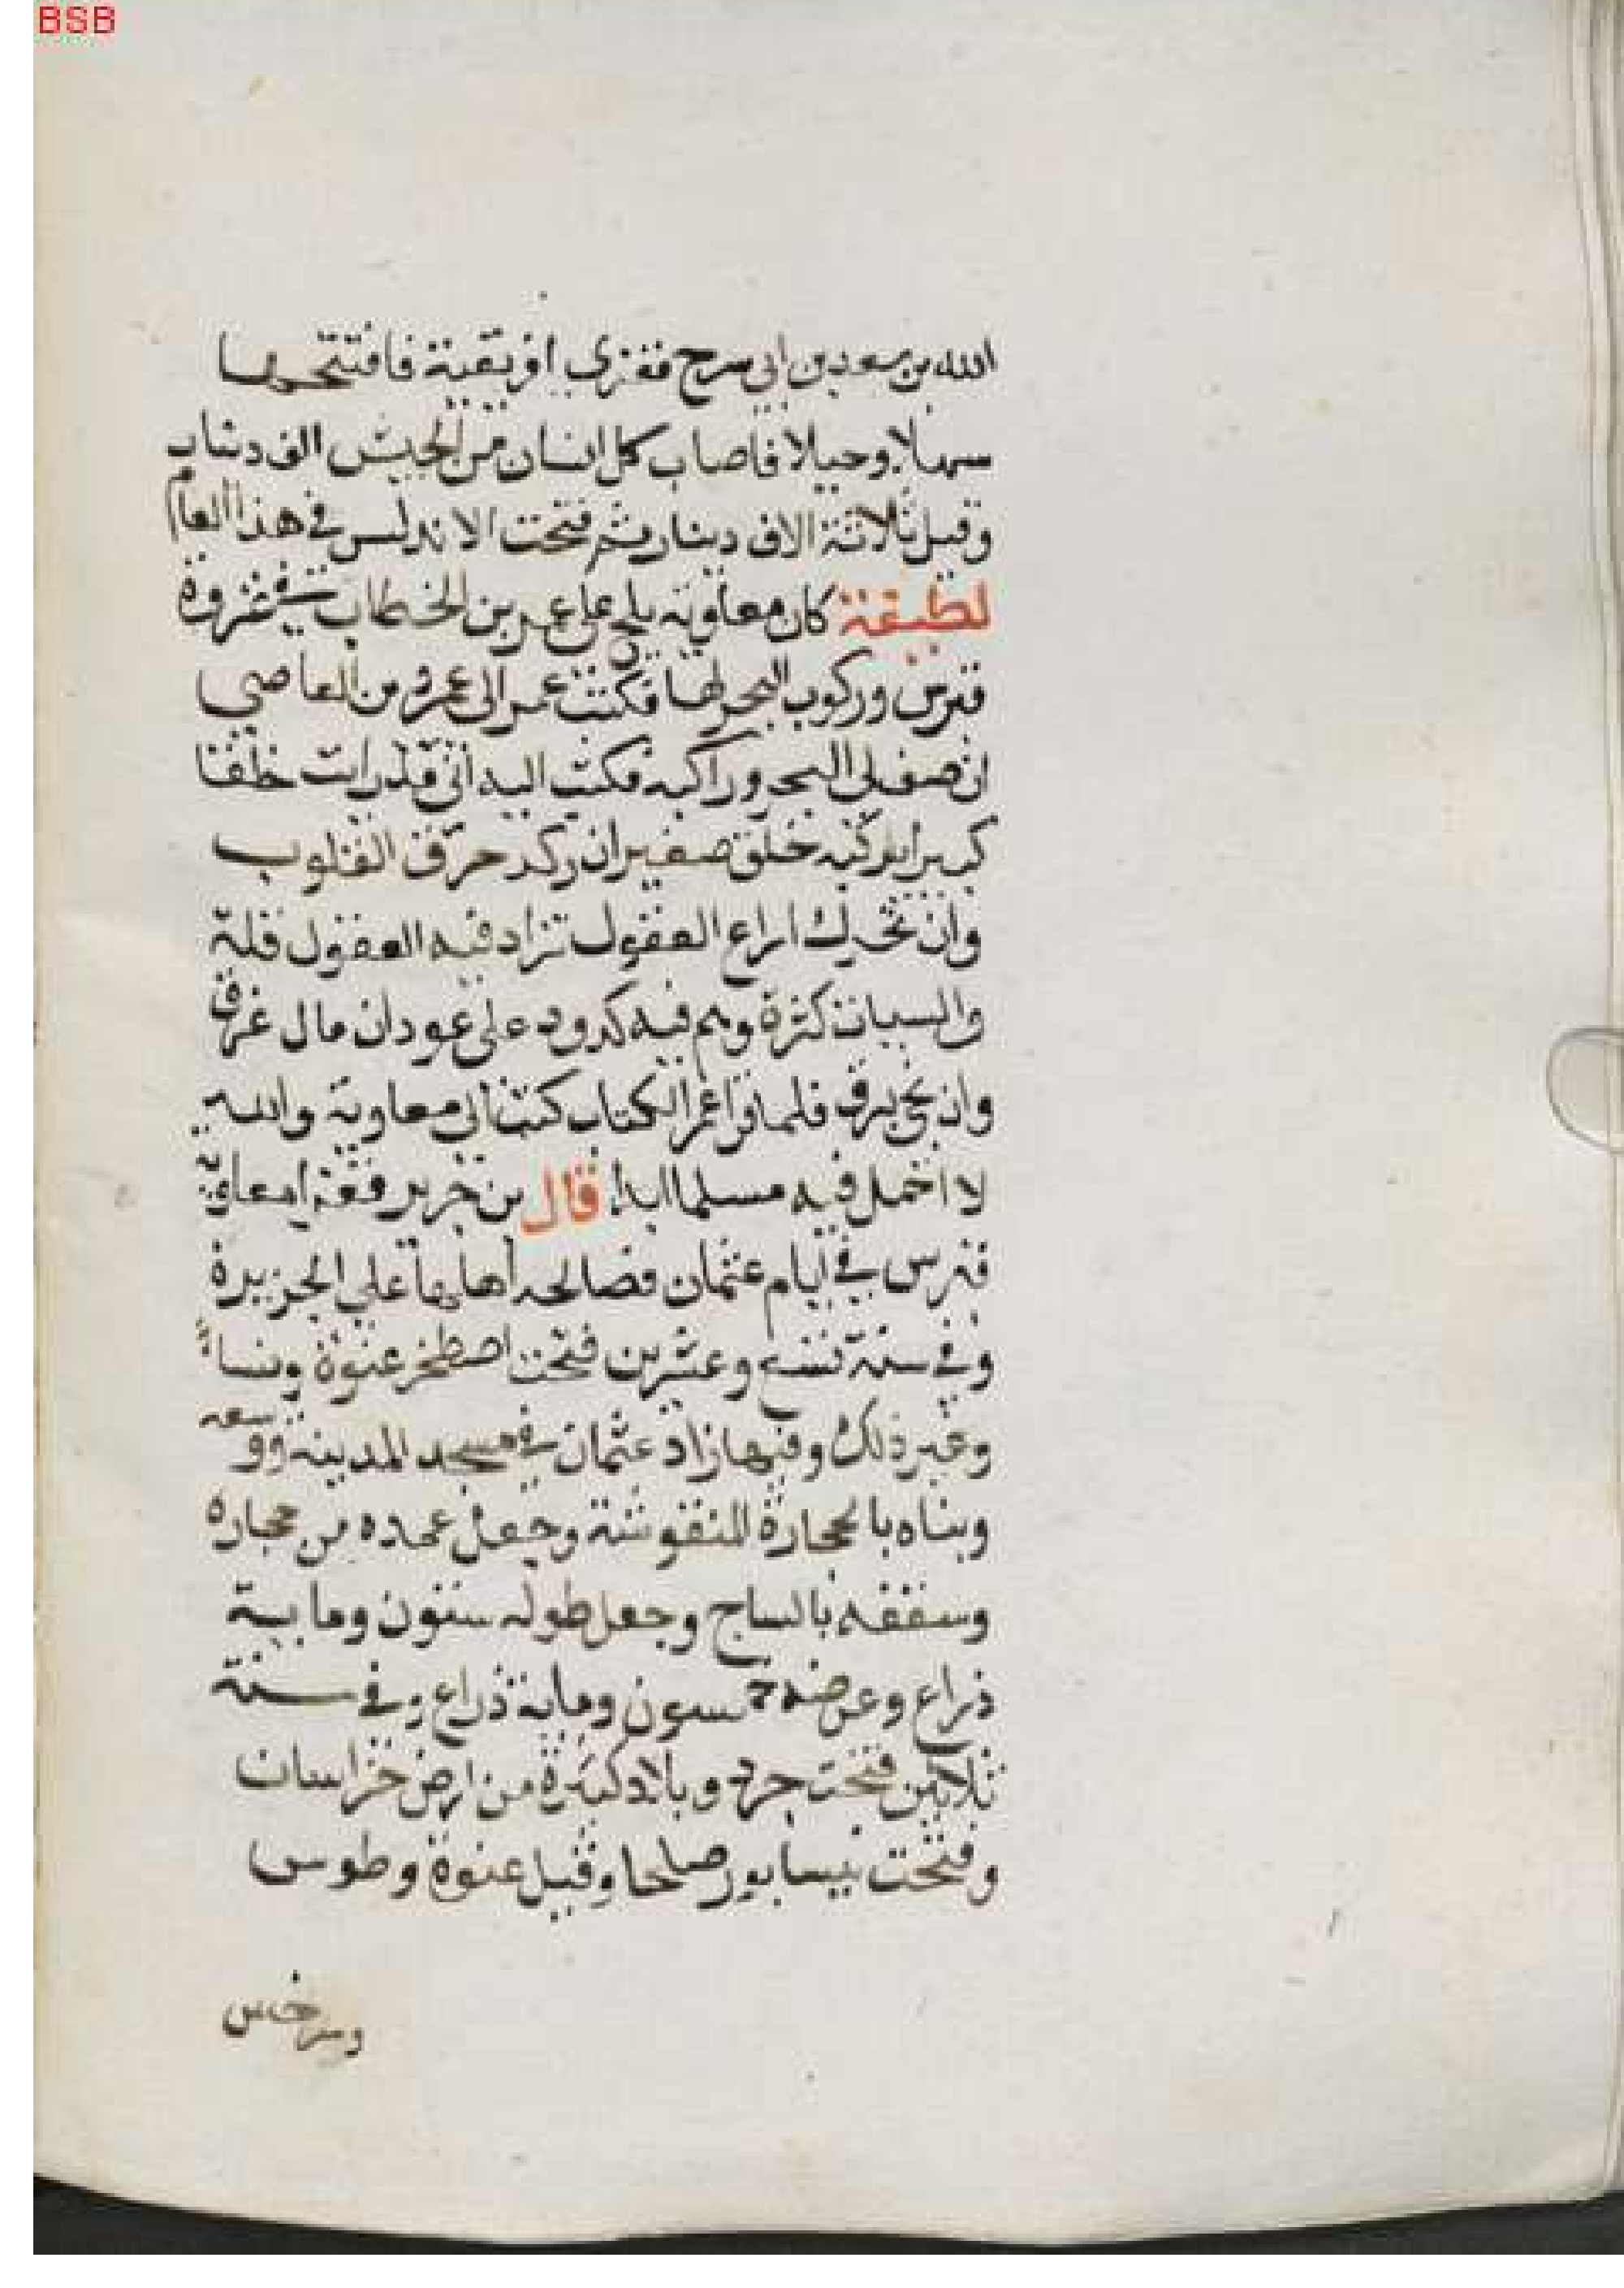 BSB
الله بن سعد بن ابى سرح فغزى افريقية فافتتحها
سهلا وجبلا فاصاب كل انسان من الجيش الف دينار
وقيل ثلاثة الاف دينار ثم فتحت الاندلس في هذا العام
لطيفة كان معاوية يلح على عمر بن الخطاب في غزوة
قبرس وركوب البحر لها فكتب عمر الى عمرو بن العاصي
ان صف لى البحر وراكبه فكتب اليه انى قد رايت خلقا
كبيرا يركبه خلق صغير ان ركد حرق القلوب
وان تحرك اراع العقول تزاد فيه العقول قلة
والسيات كثرة وهم فيه كدود على عود ان مال غرق
وان نجى برق فلما قرا عمر الكتاب كتب الى معاوية والله
لا احمل فيه مسلما ابدا قال بن جرير فغزا معاوية
قبرس في ايام عثمان فصالحه اهلها على الجزيرة
وفي سنة تسع وعشرين فتحت اصطخر عنوة ونسا
وغير ذلك وفيها زاد عثمان في مسجد المدينة ووسعه
وبناه بالحجارة المنقوشة وجعل عمده من حجارة
وسقفه بالساج وجعل طوله ستون وماية
ذراع وعرضه خمسون وماية ذراع وفي سنة
ثلاثين فتحت وبلاد كثيرة من ارض خراسان
وفتحت نيسابور صلحا وقيل عنوة وطوس
وسرخس